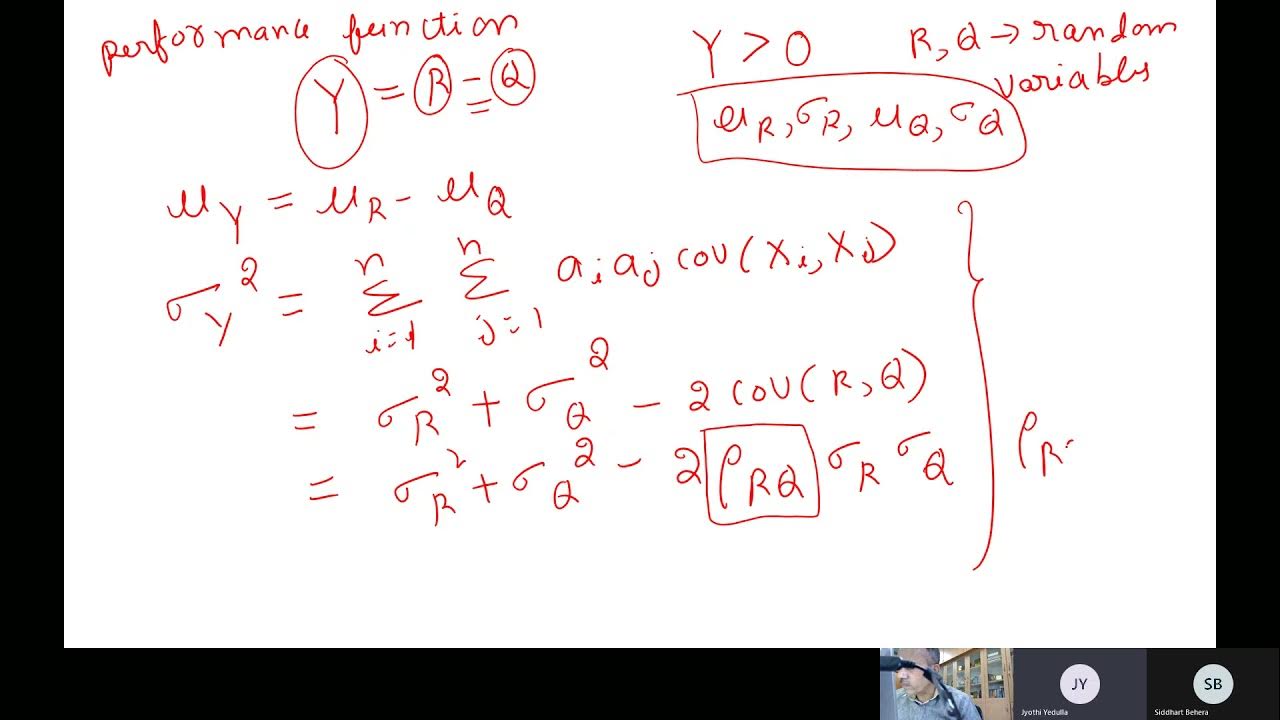 performance function
Y = R - Q
Y > 0
R, Q → random variables
μ_R, σ_R, μ_Q, σ_Q
μ_Y = μ_R - μ_Q
σ_Y^2 = Σ_{i=1}^{n} Σ_{j=1}^{n} a_i a_j cov(X_i, X_j)
= σ_R^2 + σ_Q^2 - 2 cov(R, Q)
= σ_R^2 + σ_Q^2 - 2 ρ_RQ σ_R σ_Q
ρ_R
JY
SB
Jyothi Yedulla
Siddhart Behera